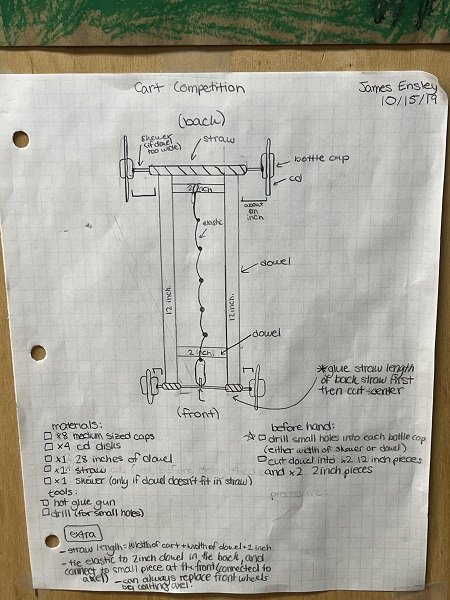 Cart Competition
James Ensley
10/15/19
(back)
skewer
(if dowel
too wide)
straw
bottle cap
cd
2 inch
about
an
inch
elastic
dowel
12 inch.
12 inch.
dowel
2 inch.
(front)
*glue straw length
of back straw first
then cut center
materials:
x8 medium sized caps
x4 cd disks
x1 28 inches of dowel
x1 straw
x1 skewer (only if dowel doesn't fit in straw)
tools:
hot glue gun
drill (for small holes)
before hand:
drill small holes into each bottle cap
(either width of skewer or dowel)
cut dowel into x2 12 inch pieces
and x2 2 inch pieces
extra
- straw length = width of cart + width of dowel + 1 inch
- tie elastic to 2 inch dowel in the back, and
connect to small piece at the front (connected to
axel)
- can always replace front wheels
by axel.